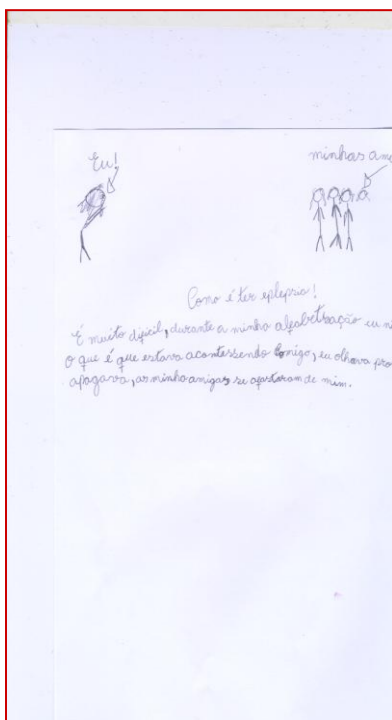 Eu!
minhas ami
Como é ter eplepsia!
É muito dificil, durante a minha alfabetização eu nã
o que é que estava acontessendo comigo, eu olhava pro
apagava, as minha amigas se afastaram de mim.